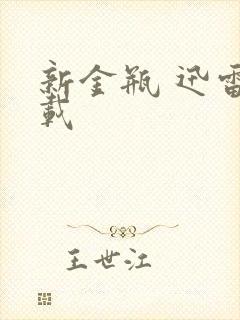 新金瓶 迅雷
载
王世江